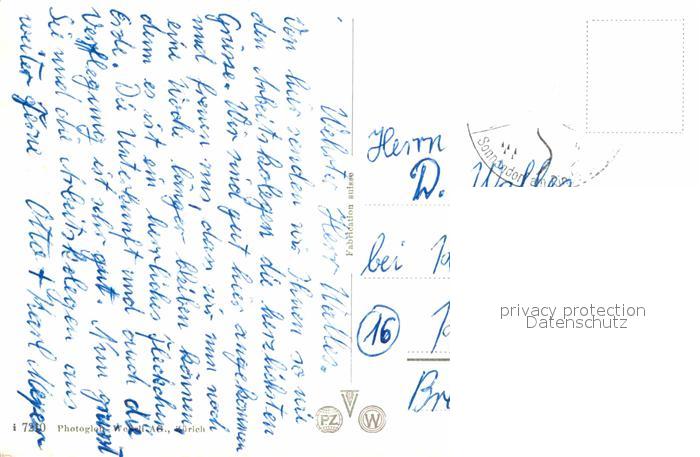 Werter Herr Müller.
Von hier senden wir Ihnen so wie
den Arbeitskolegen die herzlichsten
Grüsse. Wir sind gut hier angekommen
und freuen uns, dass wir nun noch
eine Woche länger bleiben können,
denn es ist ein herrliches Fleckchen
Erde. Die Unterkunft und auch die
Verpflegung ist sehr gut. Nun grüsst
Sie und die Arbeitskolegen aus
weiter Ferne
Otto + Karl Meyer
Fabrication suisse
Herrn
D.
bei
16
Br
Sonnendorf am
PZ
W
i 7210 Photoglob-Wehrli AG., Zürich
privacy protection
Datenschutz